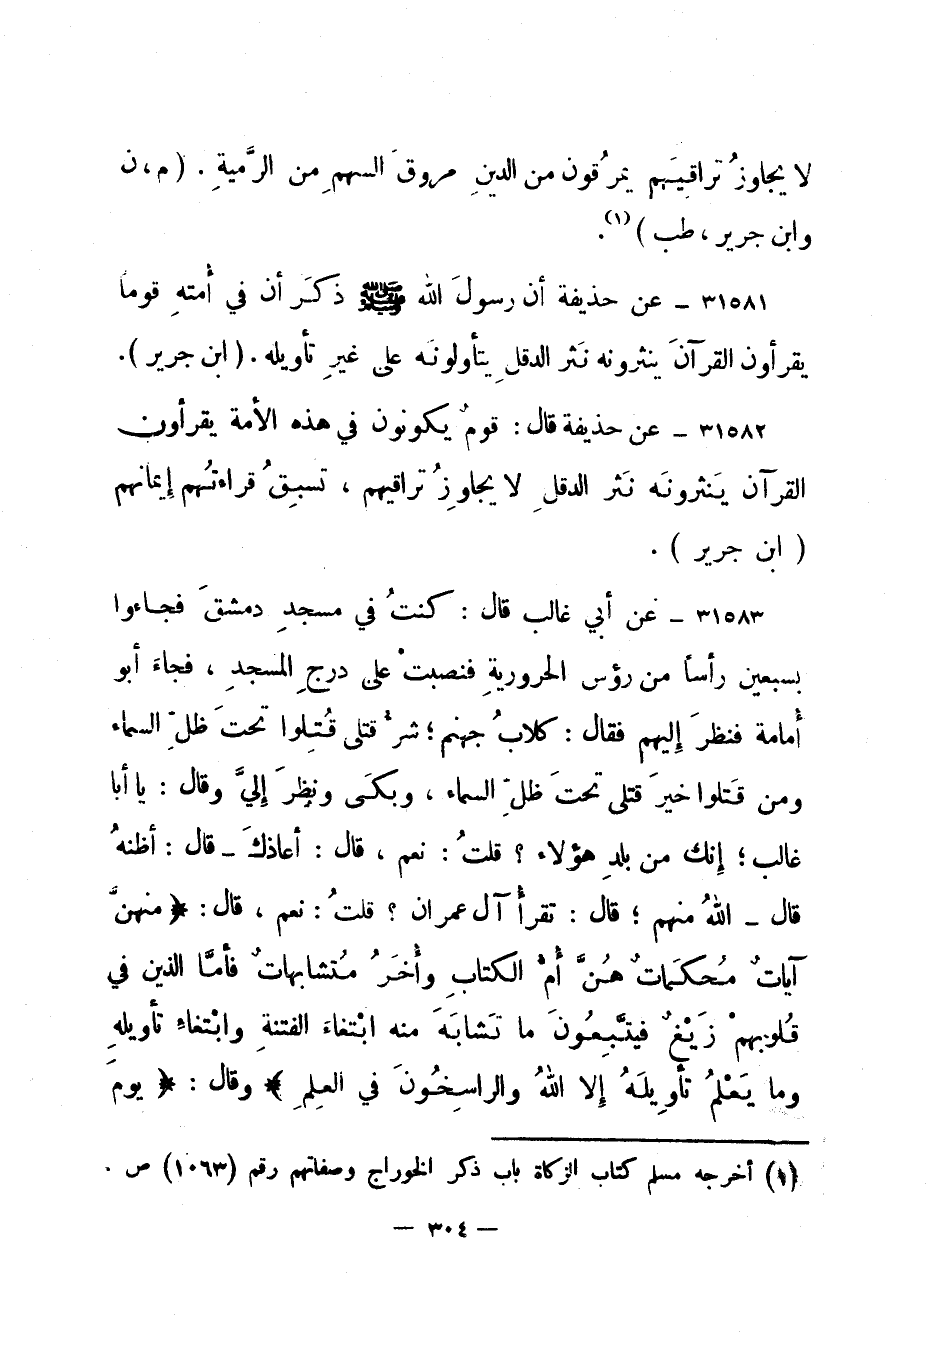 لا يجاوزُ تراقيَهم يمرُقون من الدينِ مروقَ السهمِ من الرَّميةِ . ( م ، ن
وابن جرير ، طب )(١).
٣١٥٨١ ـ عن حذيفة أن رسولَ الله ﷺ ذكَر أن في أُمته قوماً
يقرأون القرآنَ ينثرونه نَثر الدقلِ يتأولونَه على غيرِ تأويله . ( ابن جرير ) .
٣١٥٨٢ ـ عن حذيفة قال : قومٌ يكونون في هذه الأمة يقرأون
القرآن يَنثرونَه نَثر الدقلِ لا يجاوِزُ تراقيهم ، تسبِقُ قراءتُهم إيمانهم
( ابن جرير ) .
٣١٥٨٣ ـ عن أبي غالب قال : كنتُ في مسجدِ دمشقَ فجاءوا
بسبعين رأساً من رؤس الحروريةِ فنصبتْ على درجِ المسجدِ ، فجاءَ أبو
أُمامة فنظرَ إليهم فقال : كلابُ جهنم ؛ شرُّ قتلى قُتِلوا تحتَ ظلِّ السماء
ومن قَتلوا خيرَ قتلى تحتَ ظلِّ السماء ، وبكَى ونظرَ إليَّ وقال : يا أبا
غالب ؛ إنك من بلدِ هؤلاء ؟ قلتُ : نعم ، قال : أعاذكَ ـ قال : أظنهُ
قال ـ اللهُ منهم ؛ قال : تقرأُ آل عمران ؟ قلتُ : نعم ، قال : ﴿ منهنَّ
آياتٌ مُحكَماتٌ هُنَّ أُمُّ الكتابِ وأُخَرُ مُتشابهاتٌ فأمَّا الذين في
قُلوبهمْ زَيْغٌ فيتَّبِعُونَ ما تَشابَهَ منه ابْتغاءَ الفتنةِ وابْتغاءِ تأويلهِ
وما يَعْلمُ تأويلَهُ إلا اللهُ والراسِخُونَ في العلمِ ﴾ وقال : ﴿ يومَ
(١) أخرجه مسلم كتاب الزكاة باب ذكر الخوراج وصفاتهم رقم (١٠٦٣) ص .
— ٣٠٤ —